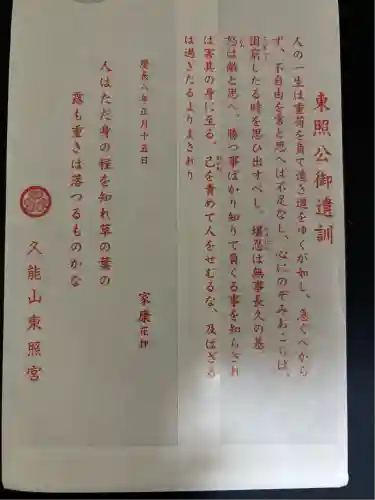 東照公御遺訓
人の一生は重荷を負て遠き道をゆくが如し、急ぐべから
ず、不自由を常と思へば不足なし、心にのぞみおこらば、
困窮したる時を思ひ出すべし。堪忍は無事長久の基
怒は敵と思へ。勝つ事ばかり知りて負くる事を知らざれ
ば害其の身に至る。己を責めて人をせむるな、及ばざる
は過ぎたるよりまされり
慶長八年正月十五日
家康花押
人はただ身の程を知れ草の葉の
露も重きは落つるものかな
久能山東照宮